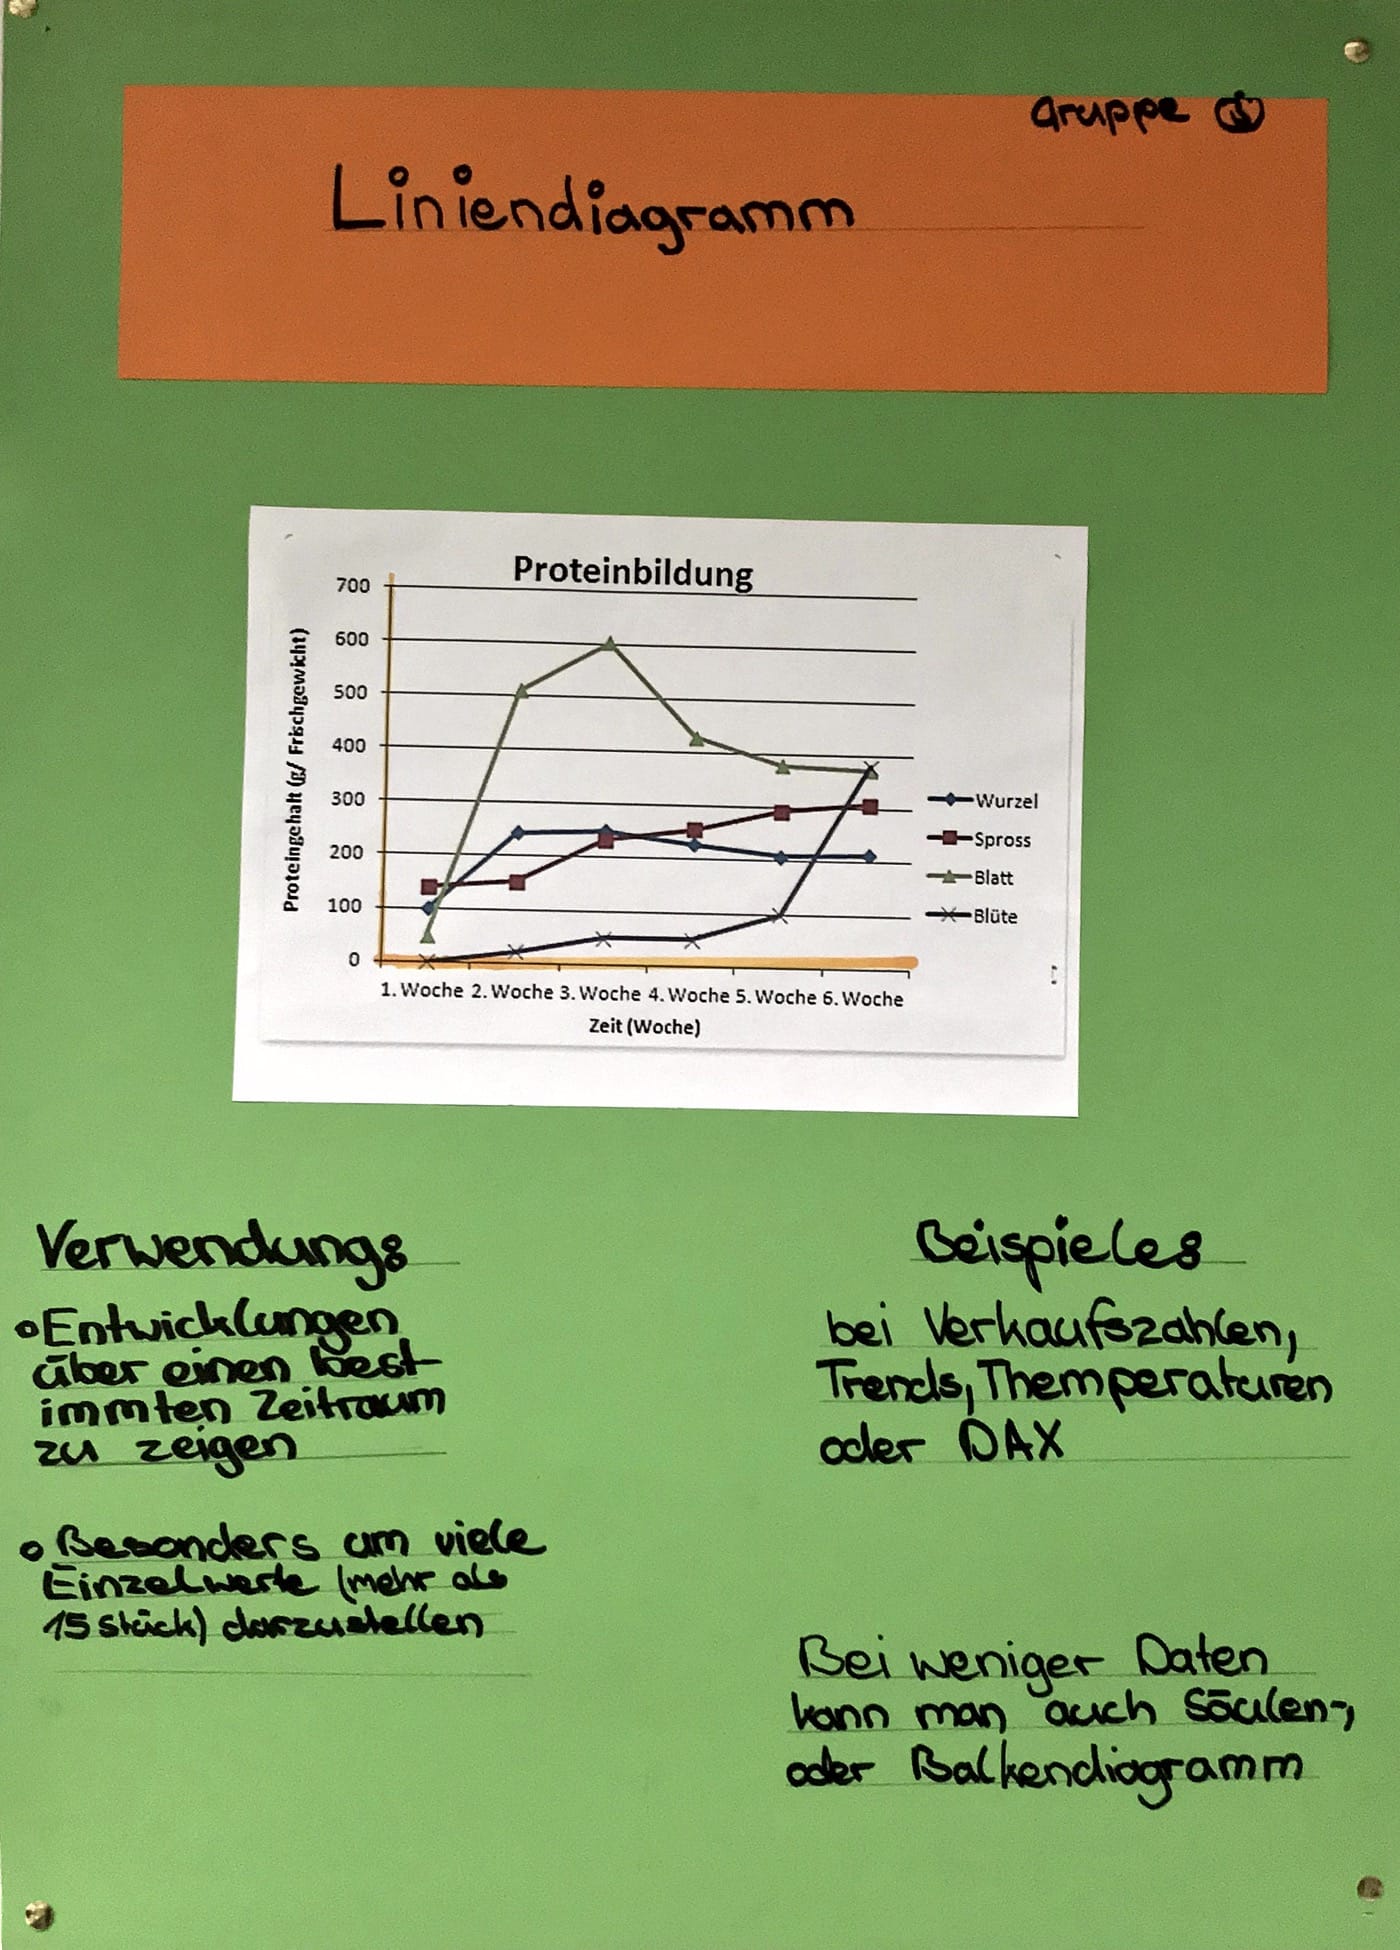 Gruppe
Liniendiagramm
Proteinbildung
Proteingehalt (g/ Frischgewicht)
700
600
500
400
300
200
100
0
1. Woche 2. Woche 3. Woche 4. Woche 5. Woche 6. Woche
Zeit (Woche)
Wurzel
Spross
Blatt
Blüte
Verwendung:
Entwicklungen
über einen best-
immten Zeitraum
zu zeigen
Besonders um viele
Einzelwerte (mehr als
15 Stück) darzustellen
Beispiele:
bei Verkaufszahlen,
Trends, Themperaturen
oder DAX
Bei weniger Daten
kann man auch Säulen-,
oder Balkendiagramm